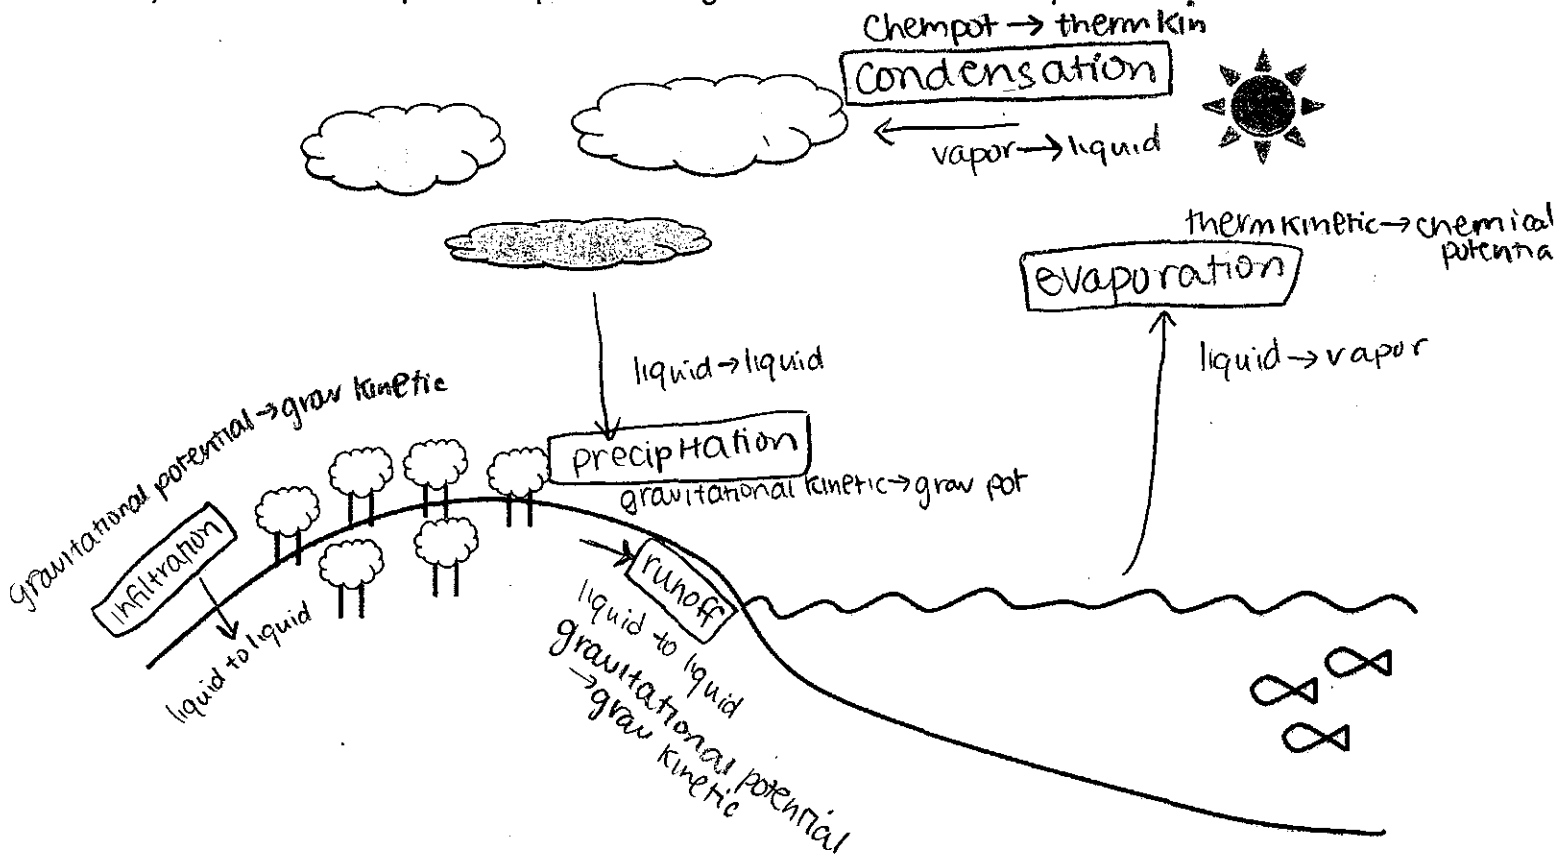 Chempot → therm Kin
Condensation
vapor → liquid
therm Kinetic → chemical
potentia
evaporation
liquid → vapor
liquid → liquid
precipitation
gravitational kinetic → grav pot
gravitational potential → grav kinetic
Infiltration
liquid to liquid
runoff
liquid to liquid
gravitational potential
→ grav kinetic